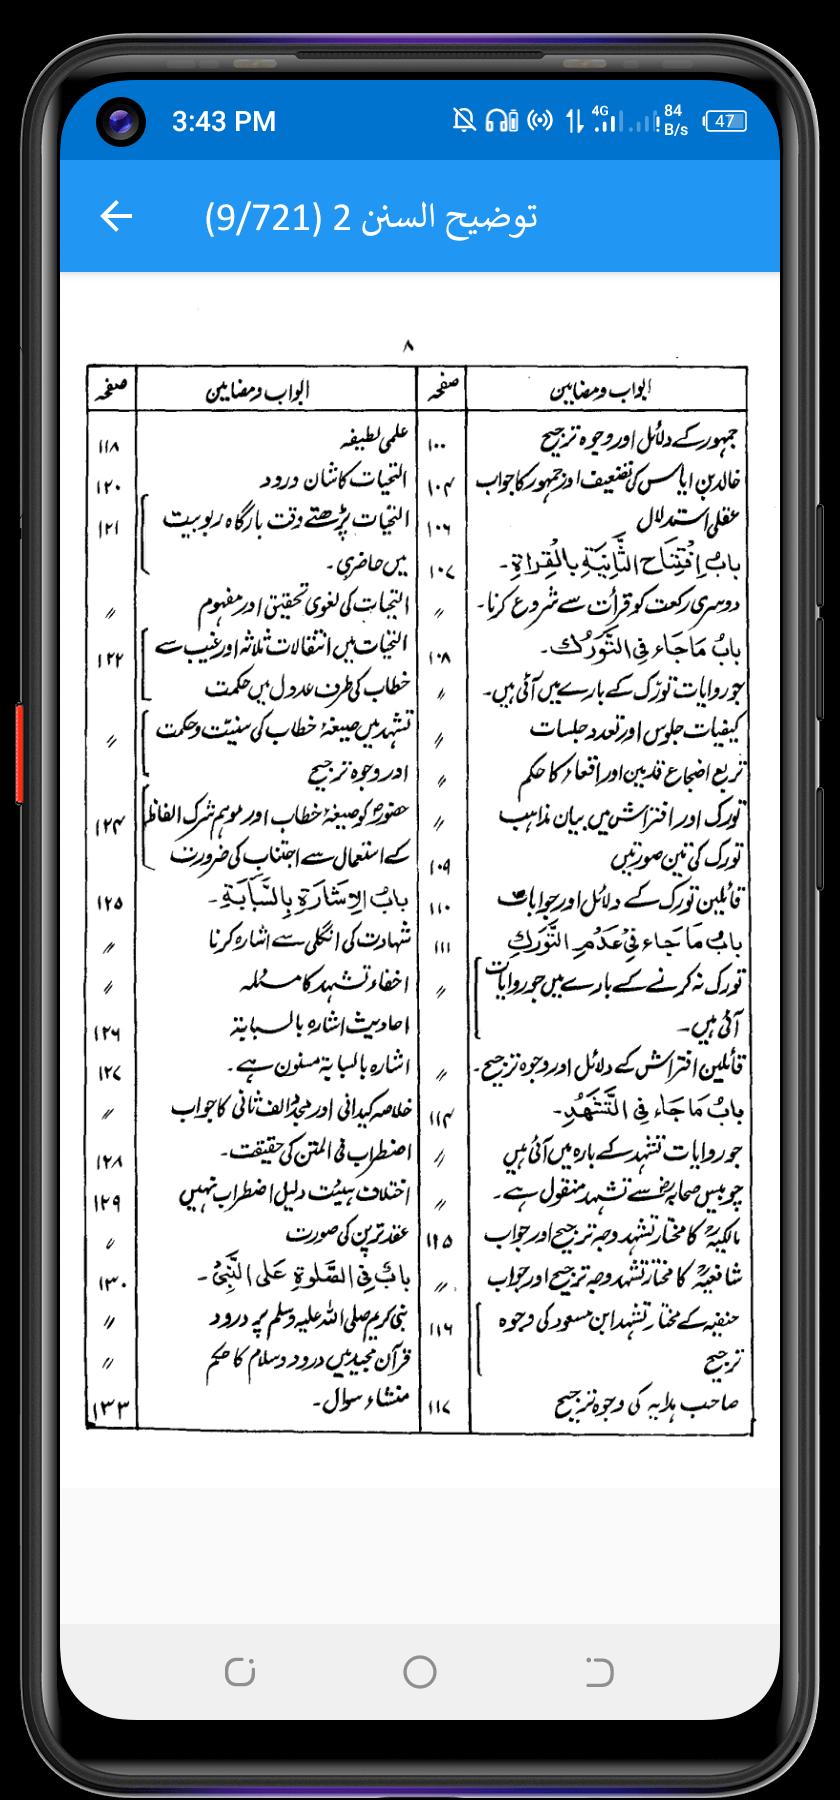 3:43 PM
4G 84 B/s 47
توضیح السنن 2 (9/721)
۸
ابواب ومضامین صفحہ
جمہور کے دلائل اور وجوہ ترجیح ۱۰۰
خالد بن ایاس کی تضعیف اور جمہور کا جواب ۱۰۴
عقلی استدلال ۱۰۶
بابُ اِفْتِتَاحِ الثَّانِيَةِ بِالْقِرَاةِ۔ ۱۰۷
دوسری رکعت کو قرأت سے شروع کرنا۔ 〃
بابُ مَاجَاءَ فِي التَّوَرُّكِ۔ ۱۰۸
جو روایات تورّک کے بارے میں آئی ہیں۔ 〃
کیفیات جلوس اور تعدد جلسات 〃
تربع اضجاع قدمین اور اقعاء کا حکم 〃
تورک اور افتراش میں بیان مذاہب 〃
تورک کی تین صورتیں ۱۰۹
قائلین تورک کے دلائل اور جوابات ۱۱۰
بابُ مَاجَاءَ فِي عَدْمِ التَّوَرُّكِ ۱۱۱
تورک نہ کرنے کے بارے میں جو روایات 〃
آئی ہیں۔
قائلین افتراش کے دلائل اور وجوہ ترجیح۔ 〃
بابُ مَاجَاءَ فِي التَّشَهُّدِ۔ ۱۱۴
جو روایات تشہد کے بارہ میں آئی ہیں 〃
چوبیس صحابہؓ سے تشہد منقول ہے۔ 〃
مالکیہؒ کا مختار تشہد وجہ ترجیح اور جواب ۱۱۵
شافعیہؒ کا مختار تشہد وجہ ترجیح اور جواب 〃
حنفیہ کے مختار تشہد ابن مسعود کی وجوہ ۱۱۶
ترجیح
صاحب ہدایہ کی وجوہ ترجیح ۱۱۷
ابواب ومضامین صفحہ
علمی لطیفہ ۱۱۸
التحیات کا شان ورود ۱۲۰
التحیات پڑھتے وقت بارگاہ ربوبیت ۱۲۱
میں حاضری۔
التحیات کی لغوی تحقیق اور مفہوم 〃
التحیات میں انتقالات ثلاثہ اور غیب سے ۱۲۲
خطاب کی طرف عدول میں حکمت
تشہد میں صیغۂ خطاب کی سنیّت وحکمت 〃
اور وجوہ ترجیح
حضورؐ کو صیغۂ خطاب اور موہم شرک الفاظ ۱۲۴
کے استعمال سے اجتناب کی ضرورت
بابُ الِاشَارَةِ بِالسَّبَّابَةِ۔ ۱۲۵
شہادت کی انگلی سے اشارہ کرنا 〃
اخفاء تشہد کا مسئلہ 〃
احادیث اشارہ بالسبابۃ ۱۲۶
اشارہ بالسبابۃ مسنون ہے۔ ۱۲۷
خلاصہ کیدانی اور مجدّد الف ثانی کا جواب 〃
اضطراب فی المتن کی حقیقت۔ ۱۲۸
اختلاف ہیئت دلیل اضطراب نہیں ۱۲۹
عقد ترپن کی صورت 〃
بابٌ فِي الصَّلٰوةِ عَلَى النَّبِيِّ۔ ۱۳۰
نبی کریم صلی اللہ علیہ وسلم پر درود 〃
قرآن مجید میں درود وسلام کا حکم 〃
منشاء سوال۔ ۱۳۳